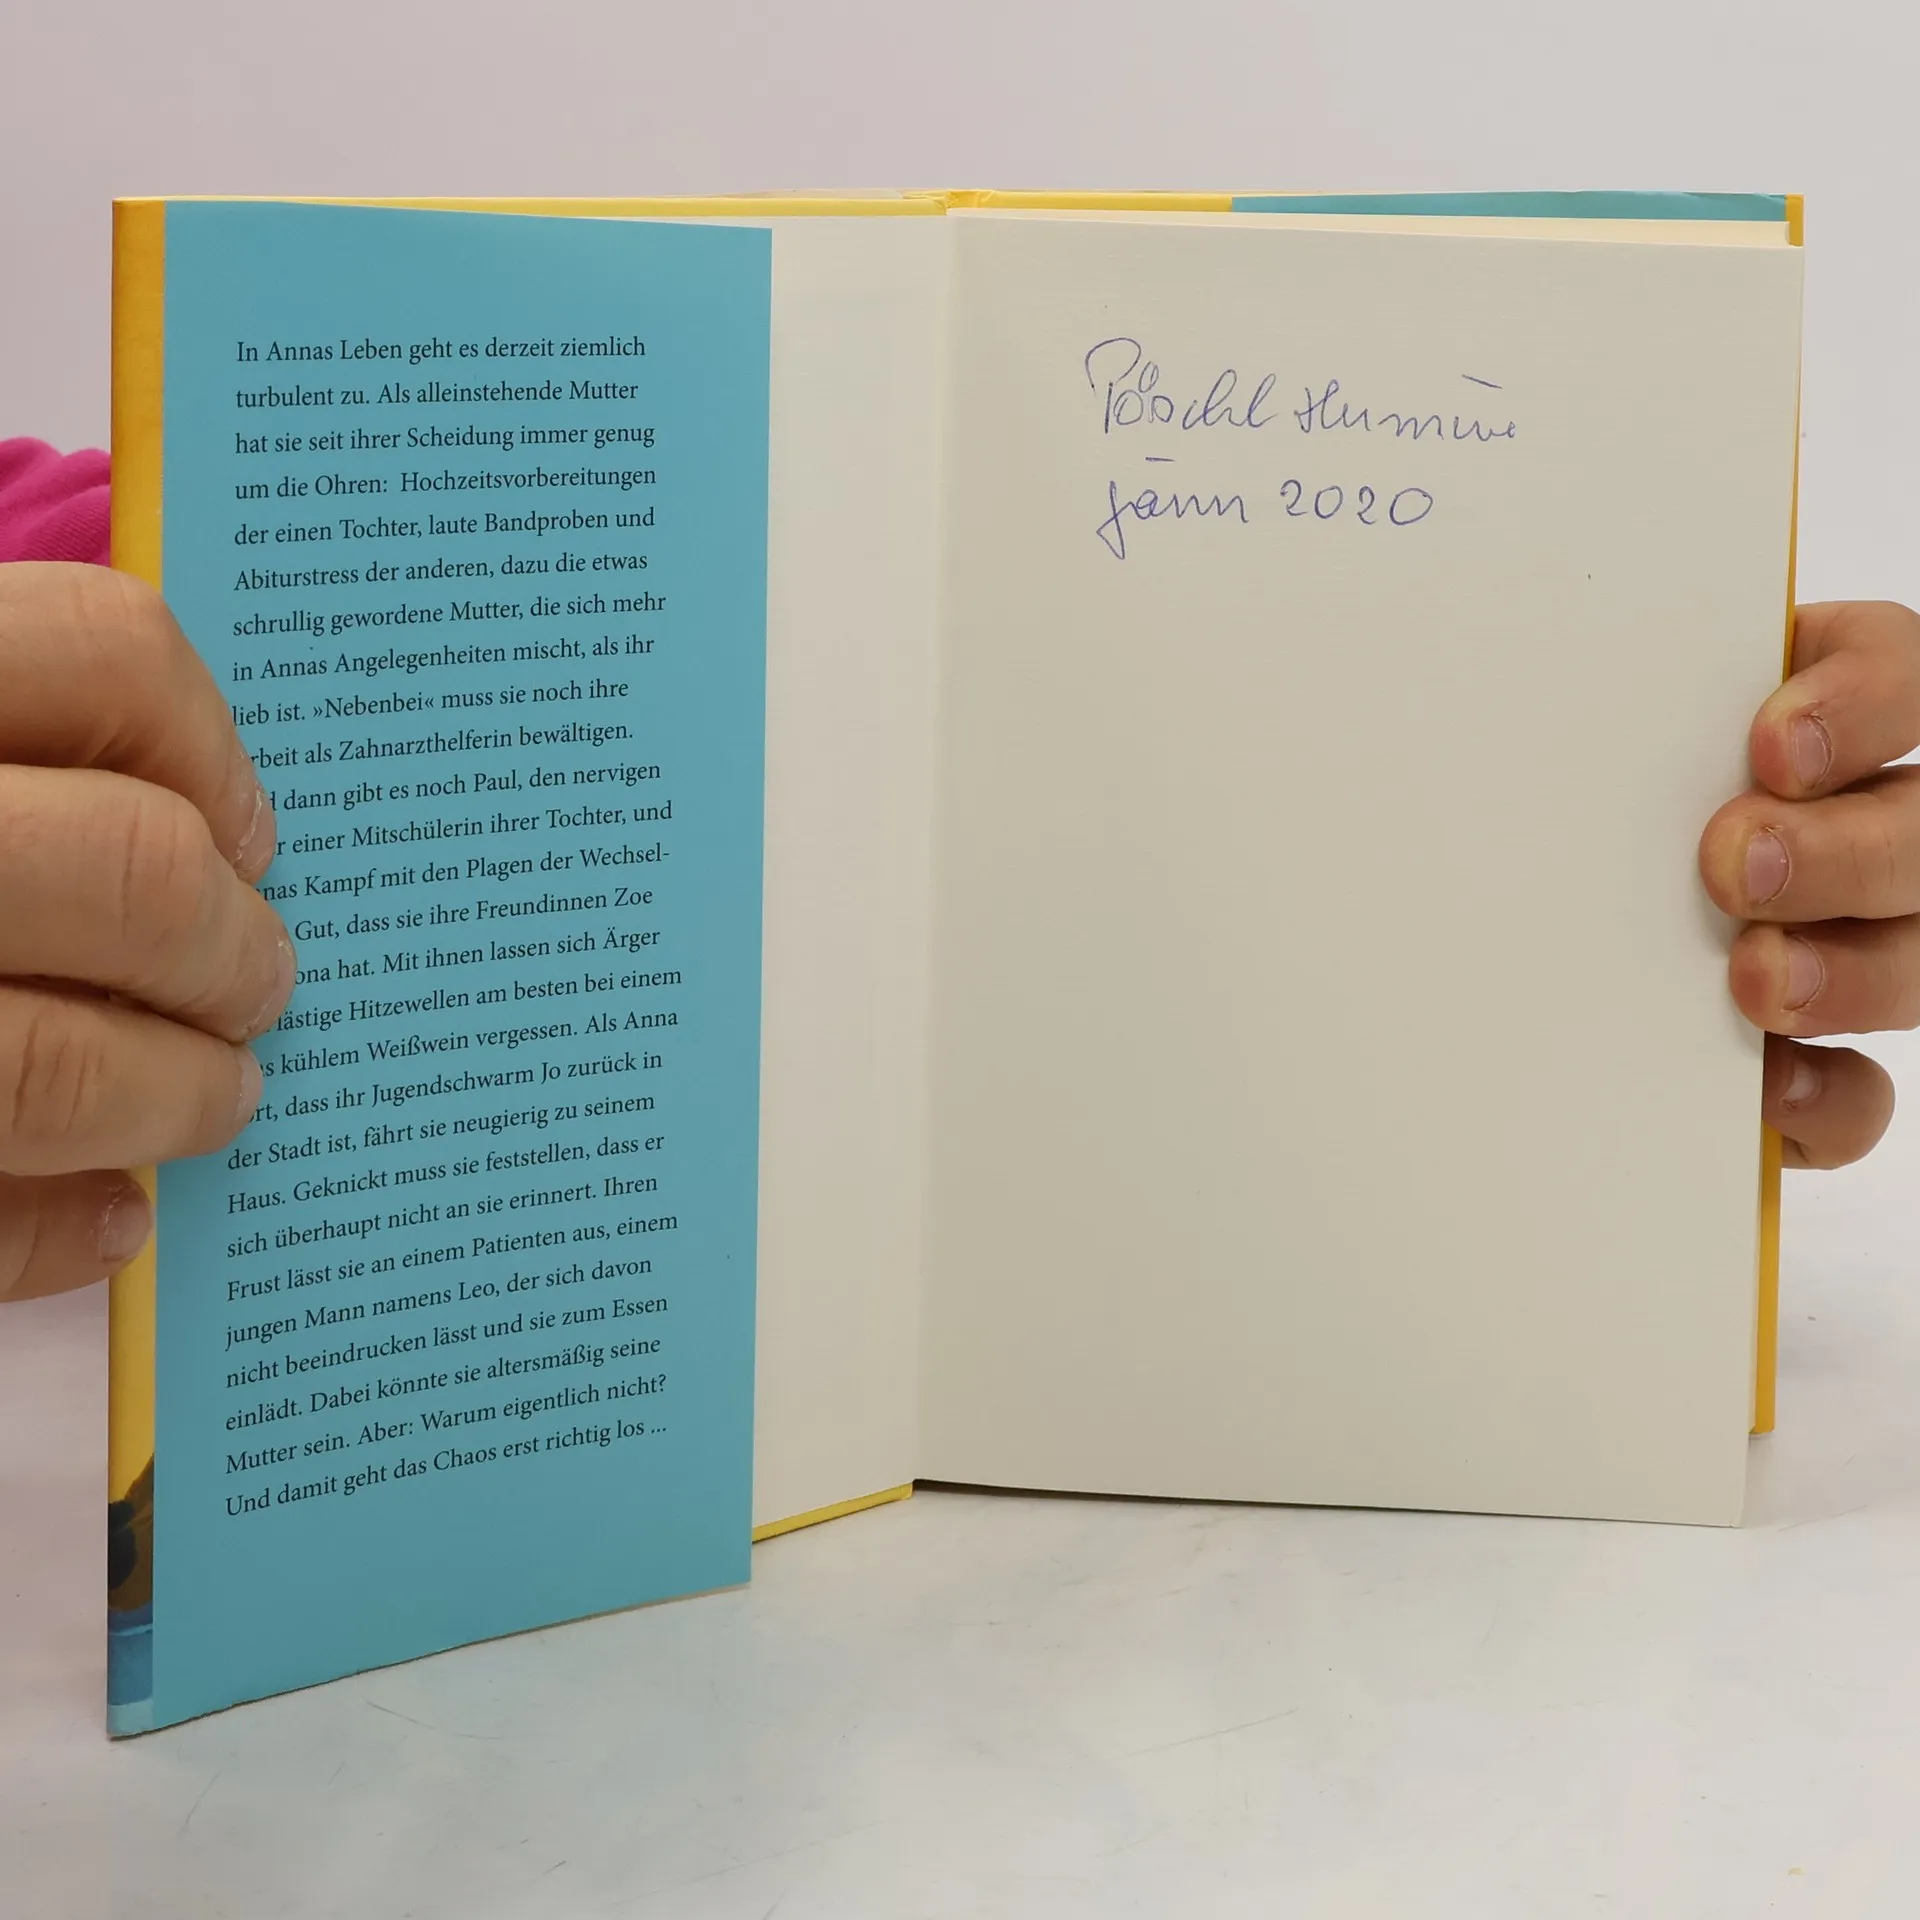 In Annas Leben geht es derzeit ziemlich
turbulent zu. Als alleinstehende Mutter
hat sie seit ihrer Scheidung immer genug
um die Ohren: Hochzeitsvorbereitungen
der einen Tochter, laute Bandproben und
Abiturstress der anderen, dazu die etwas
schrullig gewordene Mutter, die sich mehr
in Annas Angelegenheiten mischt, als ihr
lieb ist. »Nebenbei« muss sie noch ihre
rbeit als Zahnarzthelferin bewältigen.
d dann gibt es noch Paul, den nervigen
r einer Mitschülerin ihrer Tochter, und
nas Kampf mit den Plagen der Wechsel-
Gut, dass sie ihre Freundinnen Zoe
ona hat. Mit ihnen lassen sich Ärger
lästige Hitzewellen am besten bei einem
s kühlem Weißwein vergessen. Als Anna
rt, dass ihr Jugendschwarm Jo zurück in
der Stadt ist, fährt sie neugierig zu seinem
Haus. Geknickt muss sie feststellen, dass er
sich überhaupt nicht an sie erinnert. Ihren
Frust lässt sie an einem Patienten aus, einem
jungen Mann namens Leo, der sich davon
nicht beeindrucken lässt und sie zum Essen
einlädt. Dabei könnte sie altersmäßig seine
Mutter sein. Aber: Warum eigentlich nicht?
Und damit geht das Chaos erst richtig los ...
Pöschl
Jänn 2020